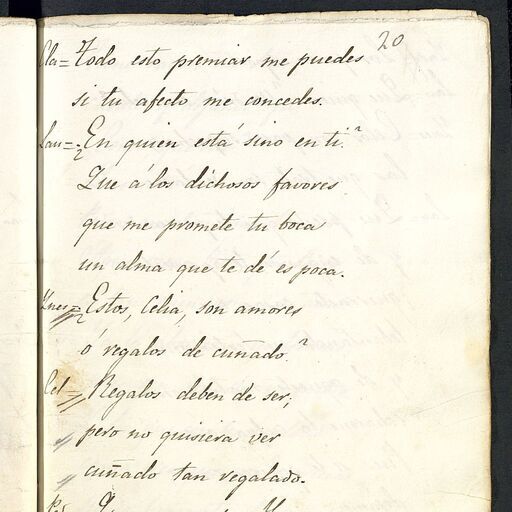 20
Cla= Todo esto premiar me puedes
si tu afecto me concedes.
Lau= ¿En quien está sino en ti?
Que á los dichosos favores
que me promete tu boca
un alma que te dé es poca.
Ynes= ¿Estos, Celia, son amores
ó regalos de cuñado?
Cel= Regalos deben de ser,
pero no quisiera ver
cuñado tan regalado.